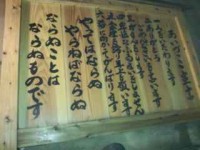 あいづっこ宣言
一 人をいたわります
二 ありがとうごめんなさいを言います
三 がまんをします
四 卑怯なふるまいをしません
五 会津を誇り年上を敬います
六 夢に向かってがんばります
やってはならぬ
やらねばならぬ
ならぬことは
ならぬものです